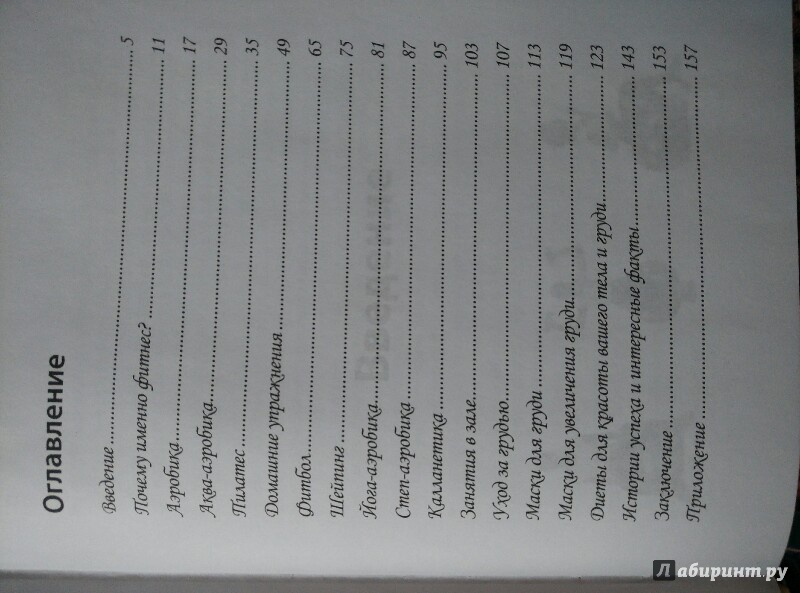 Оглавление
Введение 5
Почему именно фитнес? 11
Аэробика 17
Аква-аэробика 29
Пилатес 35
Домашние упражнения 49
Фитбол 65
Шейпинг 75
Йога-аэробика 81
Степ-аэробика 87
Калланетика 95
Занятия в зале 103
Уход за грудью 107
Маски для груди 113
Маски для увеличения груди 119
Диеты для красоты вашего тела и груди 123
Истории успеха и интересные факты 143
Заключение 153
Приложение 157
Лабиринт.ру